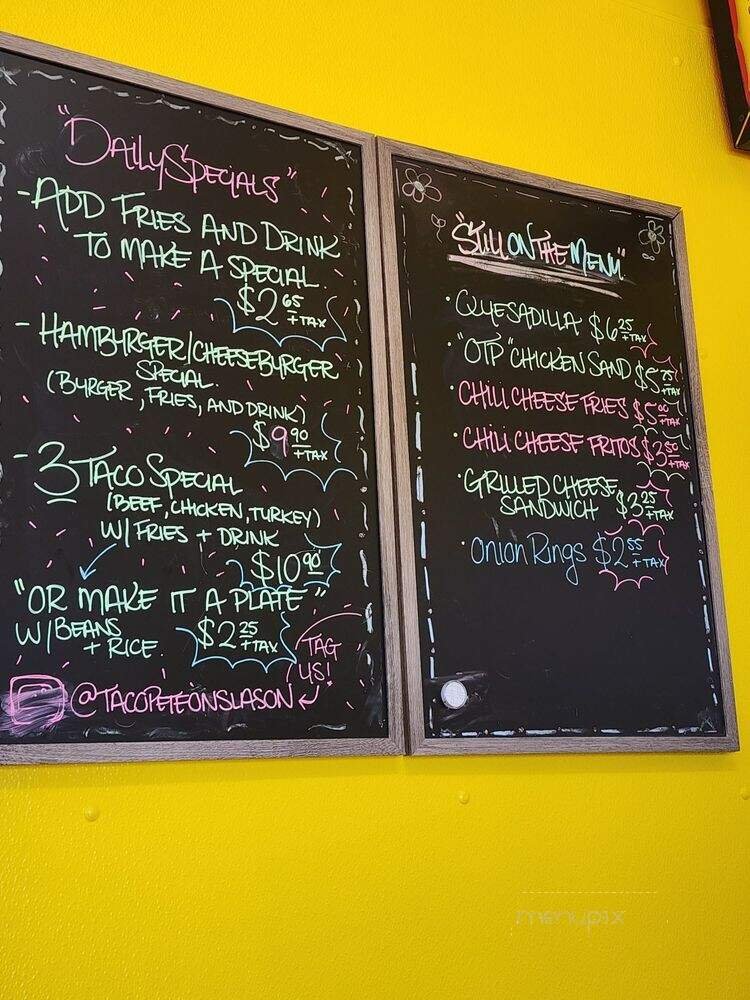 "DAILY SPECIALS"
- ADD FRIES AND DRINK
TO MAKE A SPECIAL.
$2.65 + TAX
- HAMBURGER/CHEESEBURGER
SPECIAL.
(BURGER, FRIES, AND DRINK)
$9.90 + TAX
- 3 TACO SPECIAL
(BEEF, CHICKEN, TURKEY)
W/ FRIES + DRINK
$10.90
"OR MAKE IT A PLATE"
W/ BEANS
+ RICE.
$2.25 + TAX
TAG
US!
@TACOPETEONSLASON
"STILL ON THE MENU".
• QUESADILLA $6.25 + TAX
• "OTP" CHICKEN SAND $5.75 + TAX
• CHILI CHEESE FRIES $5.00 + TAX
• CHILI CHEESE FRITOS $3.50 + TAX
• GRILLED CHEESE
SANDWICH $3.25 + TAX
• Onion Rings $2.55 + TAX
menupix